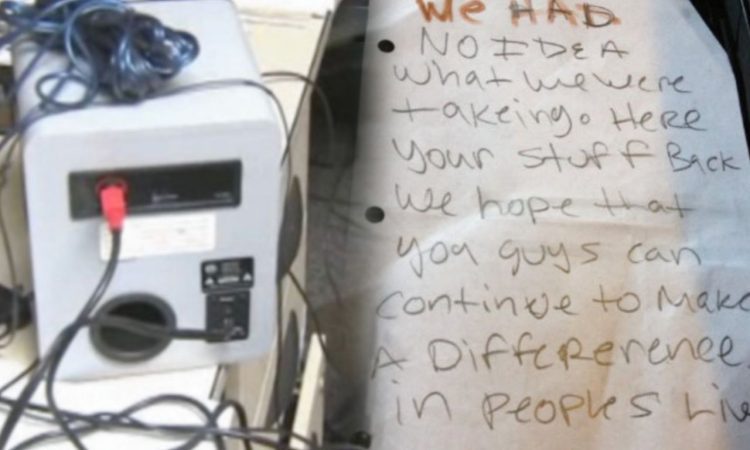 We HAD
NO IDEA
what we were
takeing. Here
your stuff Back
We hope that
you guys can
continue to Make
A Differerence
in PeoPles Live